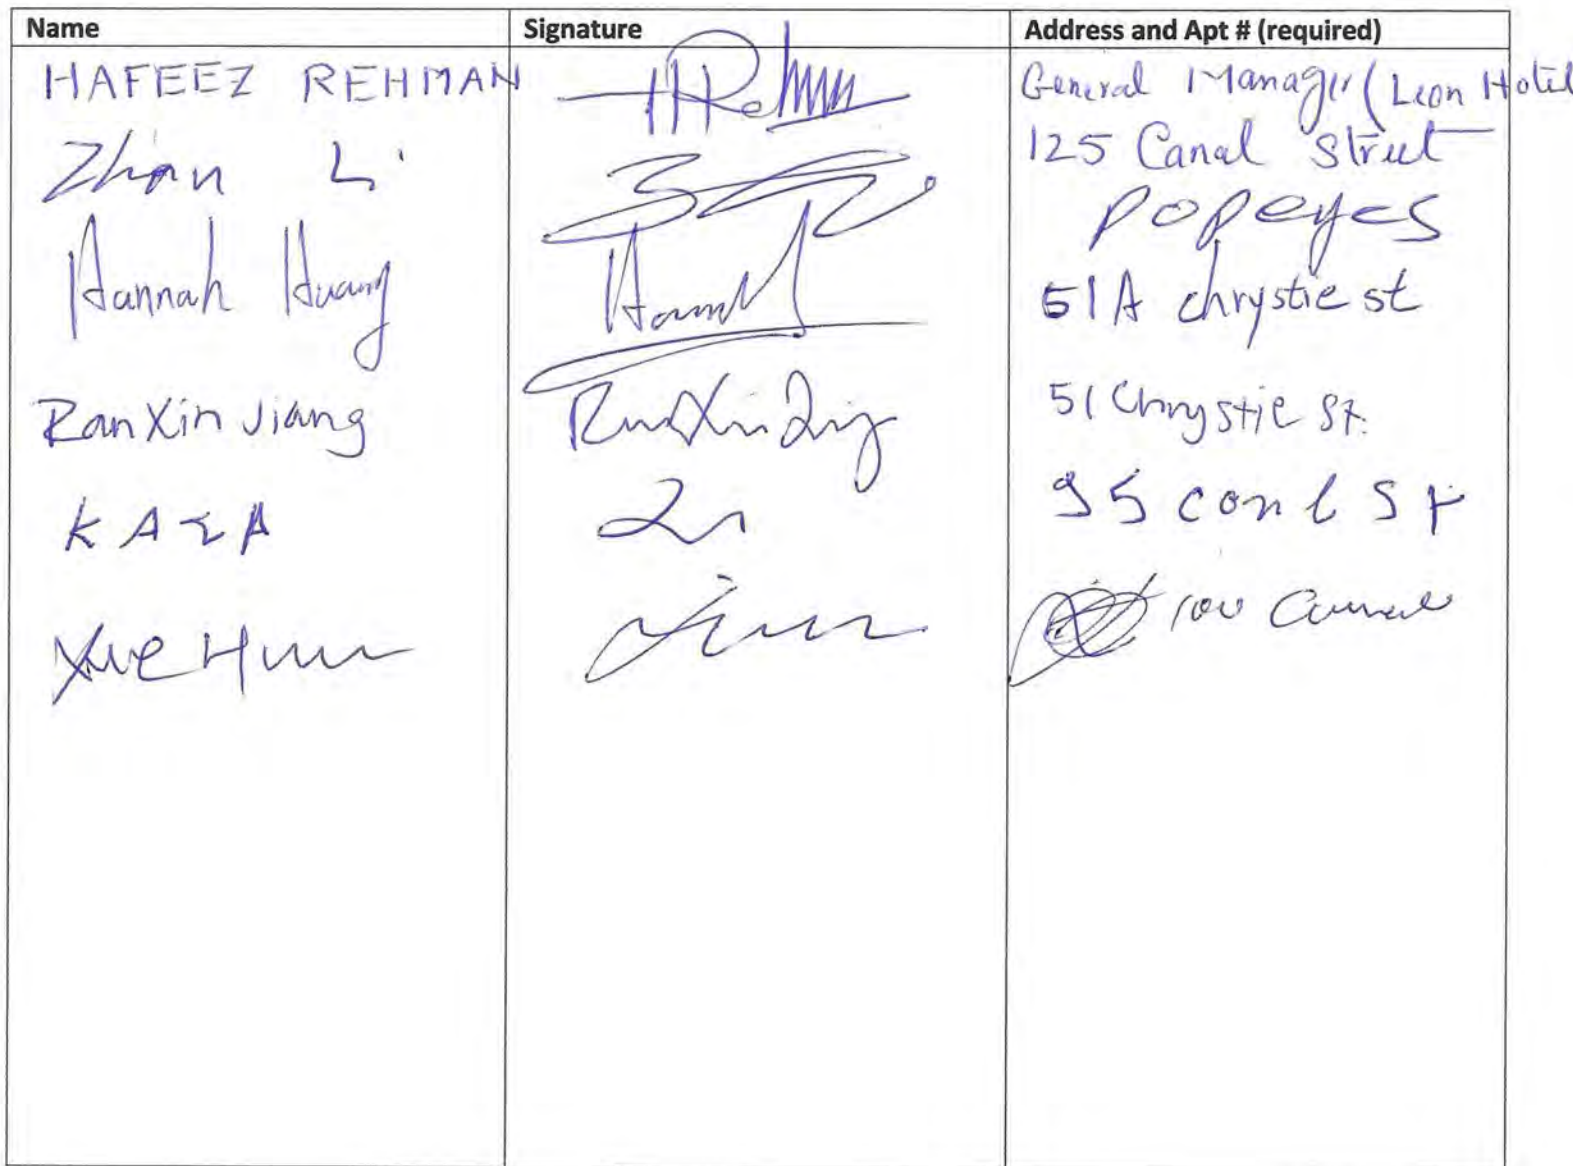 Name Signature Address and Apt # (required)
HAFEEZ REHMAN HRehman General Manager (Leon Hotel
125 Canal Street
Zhan Li Popeyes
Hannah Huang Hannah 51A chrystie st
RanXin Jiang RanXin Jiang 51 Chrystie St.
95 St
Xue 100